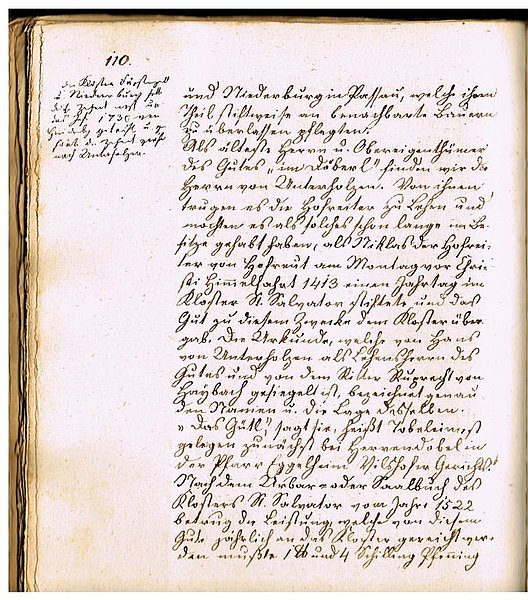 110.
die Klöster Fürstenzell
u. Niedernburg
nach Unterholzen.
und Niederburg in Passau, welche ihren
Theil stiftweise an benachbarte Bauern
zu überlassen pflegten.
Als älteste Herrn u. Obereigenthümer
des Gutes „im Döberl" finden wir die
Herrn von Unterholzen. Von ihnen
trugen es die Hofreiter zu Lehen und
mochten es als solches schon lange im Be-
sitze gehabt haben, als Niklas der Hofrei-
ter von Hofreut am Montag vor Chri-
sti Himmelfahrt 1413 einen Jahrtag im
Kloster St. Salvator stiftete und das
Gut zu diesem Zwecke dem Kloster über-
gab. Die Urkunde, welche von Hans
von Unterholzen als Lehensherrn des
Gutes und von dem Ritter Ruprecht von
Haybach gesiegelt ist, bezeichnet genau
den Namen u. die Lage desselben.
„Das Gütl" sagt sie, heißt Tobeleinest
gelegen zunächst bei Herrendobel in
der Pfarr Egglheim Vilshofer Gerichts"
Nach dem Urbar- oder Saalbuch des
Klosters St. Salvator vom Jahr 1522
betrug die Leistung, welche von diesem
Gute jährlich an das Kloster gereicht wer-
den mußte 1 ℔ und 4 Schilling Pfenning